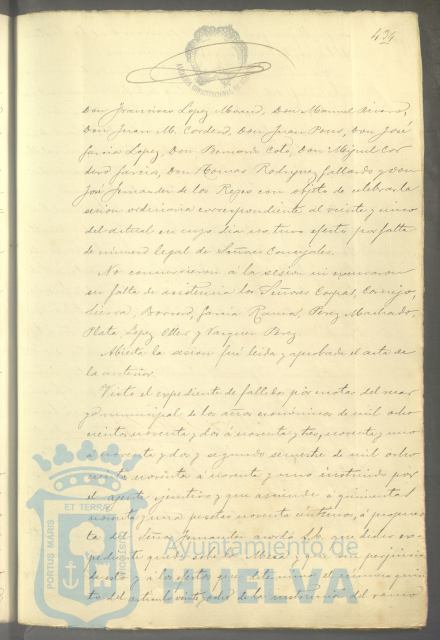 434
Don Francisco Lopez Moreno, Don Manuel
Don Juan M. Cordero, Don Juan Pons, Don José
Garcia Lopez, Don Bernardo Coto, Don Miguel Cor
dero Garcia, Don Tomas Rodriguez Gallardo y Don
José Fernandez de los Reyes con objeto de celebrar la
sesion ordinaria correspondiente al veinte y cinco
del actual en cuyo dia no tuvo efecto por falta
de número legal de Señores Concejales.
No concurrieron á la sesion ni escusaron
su falta de asistencia los Señores Corpas, Cornejo,
Garcia Ramos, Perez Machado,
Plata, Lopez y Vazquez Perez.
Abierta la sesion fué leida y aprobada el acta de
la anterior.
Visto el expediente de fallidos por cuotas del recar
go municipal de los años económicos de mil ocho
cientos noventa y dos á noventa y tres, noventa y uno
á noventa y dos y segundo semestre de mil ocho
cientos noventa á noventa y uno instruido por
el agente ejecutivo y que asciende á quinientas
noventa y una pesetas noventa centimos, á propues
ta del Señor Fernandez acordó S.E. que dicho ex
pediente quede sobre la Mesa sin perjuicio
de esto y á los efectos que determina el
del artículo veinte y ocho de la instruccion del ramo
PORTUS MARIS
ET TERRÆ
CUSTODIA
Ayuntamiento de
HUELVA